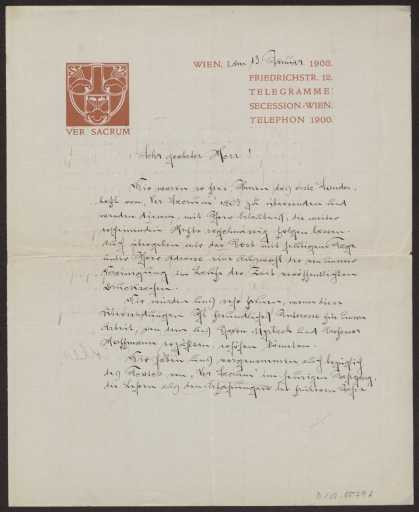 WIEN, den 13 Januar 1900.
FRIEDRICHSTR. 12.
TELEGRAMME:
SECESSION-WIEN.
TELEPHON 1900.
VER SACRUM
Sehr geehrter Herr!
Wir waren so frei Ihnen das erste
von Ver Sacrum 1900 zu übersenden und
werden Ihnen, mit Ihrer Erlaubnis, die weiter
erscheinenden Hefte regelmässig folgen lassen.
Auch übergeben wir der Post mit heutigem Tage
unter Ihrer Adresse eine Auswahl der von unserer
Vereinigung im Laufe der Zeit veröffentlichten
Drucksachen.
Wir würden uns sehr freuen, wenn diese
Übersendungen Ihr freundliches Interesse für unsere
Arbeit, von dem uns Herrn und Professor
Hoffmann erzählten, erhöhen könnten.
Wir haben uns vorgenommen auch bezüglich
des Textes von "Ver Sacrum" im heurigen Jahrgang,
die Lehren aus den Erfahrungen der früheren